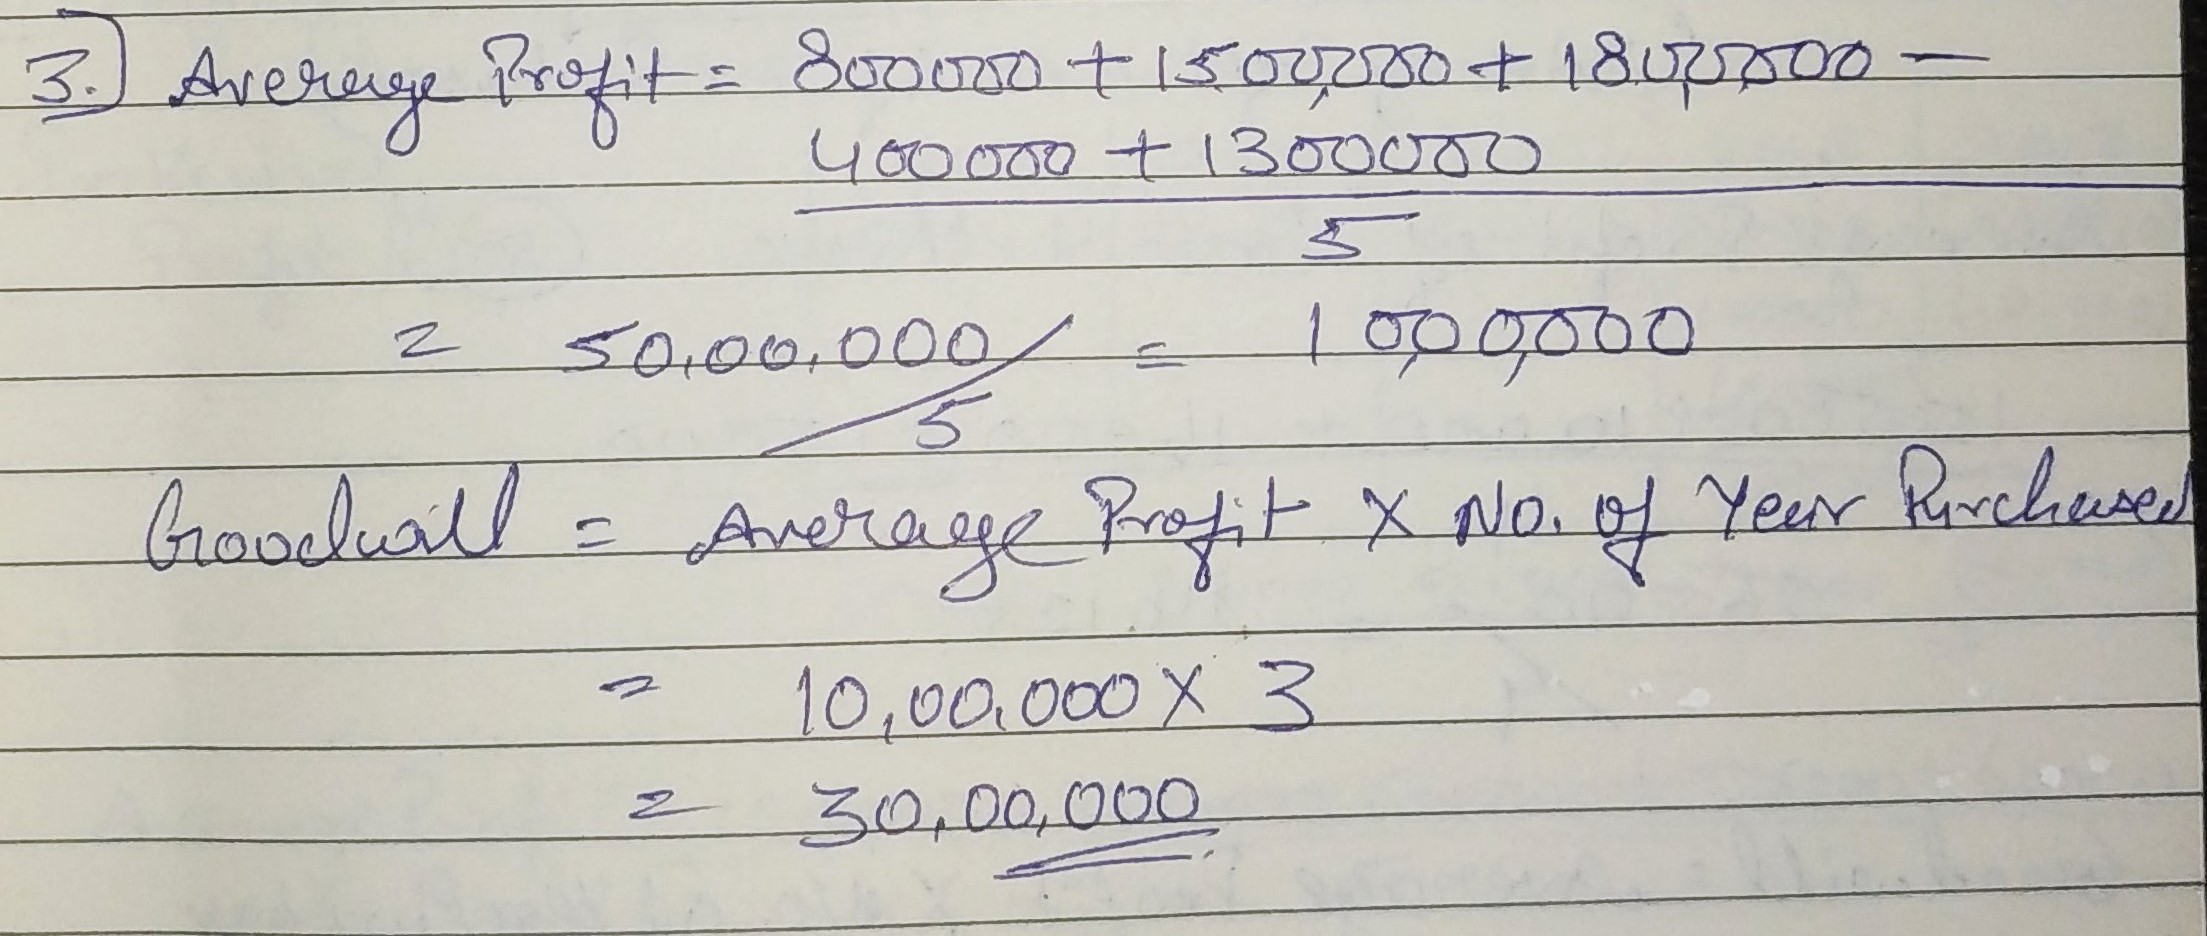 3.) Average Profit = 800000 + 1500,000 + 1800,000 -
400000 + 1300000
5
= 50,00,000 / 5 = 10,00,000
Goodwill = Average Profit X No. of Year Purchased
= 10,00,000 X 3
= 30,00,000